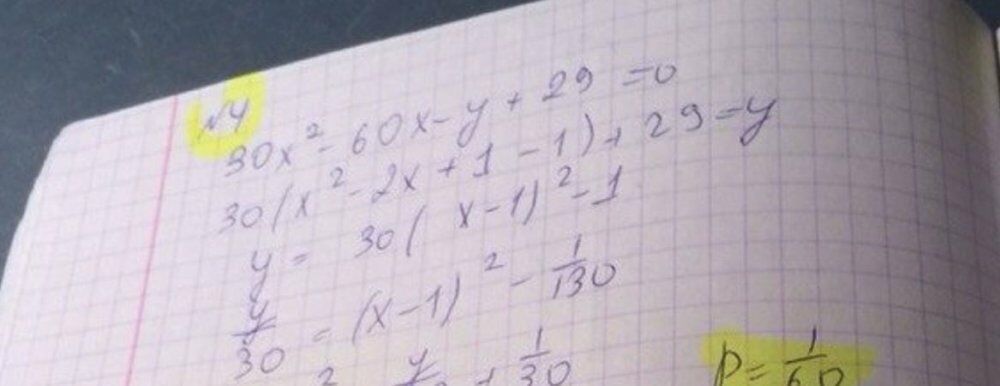 №4
30x² - 60x - y + 29 = 0
30(x² - 2x + 1 - 1) + 29 = y
y = 30(x-1)² - 1
y/30 = (x-1)² - 1/130
p = 1/60